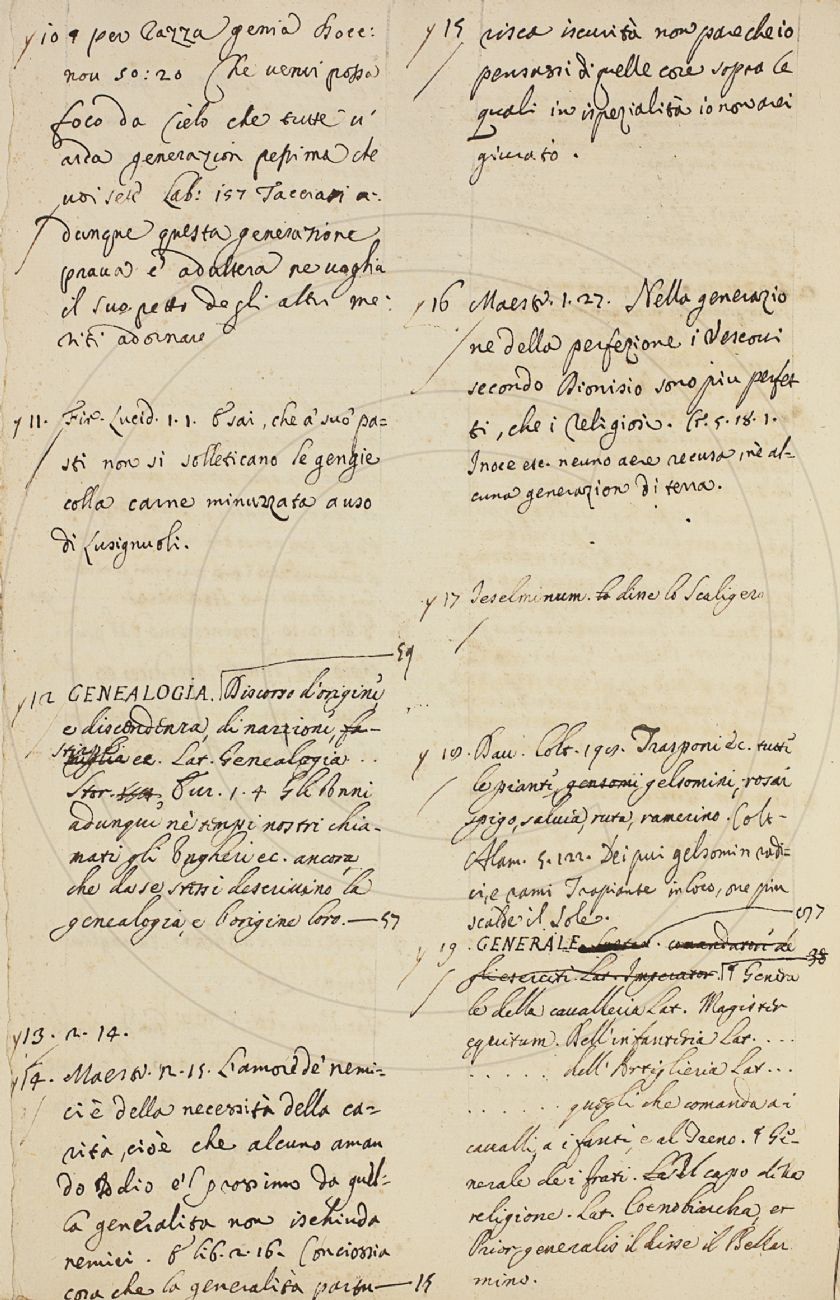 y 10 q per Razza genia Bocc:
nov 50:20 Che venir possa
foco da Cielo che tutte v'
arda generazion pessima che
voi sete Lab: 157 Tacciasi a-
dunque questa generazione
prava e adultera ne voglia
il suo petto degli altri me-
riti adornare
y 11. Fir. Lucid. 1.1. E sai, che a' suo' pa=
sti non si solleticano le gengie
colla carne minuzzata a uso
di Lusignuoli.
59
y 12 GENEALOGIA. Discorso d'origine,
e discendenza, di nazzioni, fa-
stirpi
miglia ec. Lat. Genealogia ..
Stor. Eur. 1.4 Gli Unni
adunque nè tempi nostri chia-
mati gli Ungheri ec. ancora
che da se stessi descrivino la
genealogia, e l'origine loro.—57
y 13. 2. 14.
y 14. Maestr. 2. 15. L'amore de' nemi-
ci è della necessità della ca=
rità, cioè che alcuno aman
do Iddio e 'l prossimo da quel-
la generalità non ischiuda
nemici. E lib. 2. 16. Conciossia
cosa che la generalità partu—15
y 15 risca iscurità non pare che io
pensassi di quelle cose sopra le
quali in ispezialità io non arei
giurato.
y 16 Maestr. 1. 27. Nella generazio
ne della perfezione i Vescovi
secondo Dionisio sono piu perfet
ti, che i religiosi. Cr. 5. 18. 1.
Inoce etc. neuno aere recusa, nè al=
cuna generazion di terra.
y 17 Jeselminum. lo disse lo Scaligero
y 18. Dav. Colt. 198. Trasponi ec. tutte
le piante, gensomi gelsomini, rosai
spigo, salvia, ruta, ramerino. Colt-
Alam. 5. 122. Dei piu gelsomin radi=
ci, e rami Trapiante in loco, ove piu
scalde il Sole.
y 19. GENERALE. comandatori de
38
gli eserciti. Lat. Imperator. ¶ Genera
le della cavalleria Lat. Magister
equitum. Dell'infanteria Lat. ...
...... dell'Artiglieria Lat...
....... quegli che comanda ai
cavalli, a i fanti, e al Treno. ¶ Ge-
nerale de i frati. il capo di una
religione. Lat. Coenobiarcha, et
Prior generalis il disse il Bellar
mino.